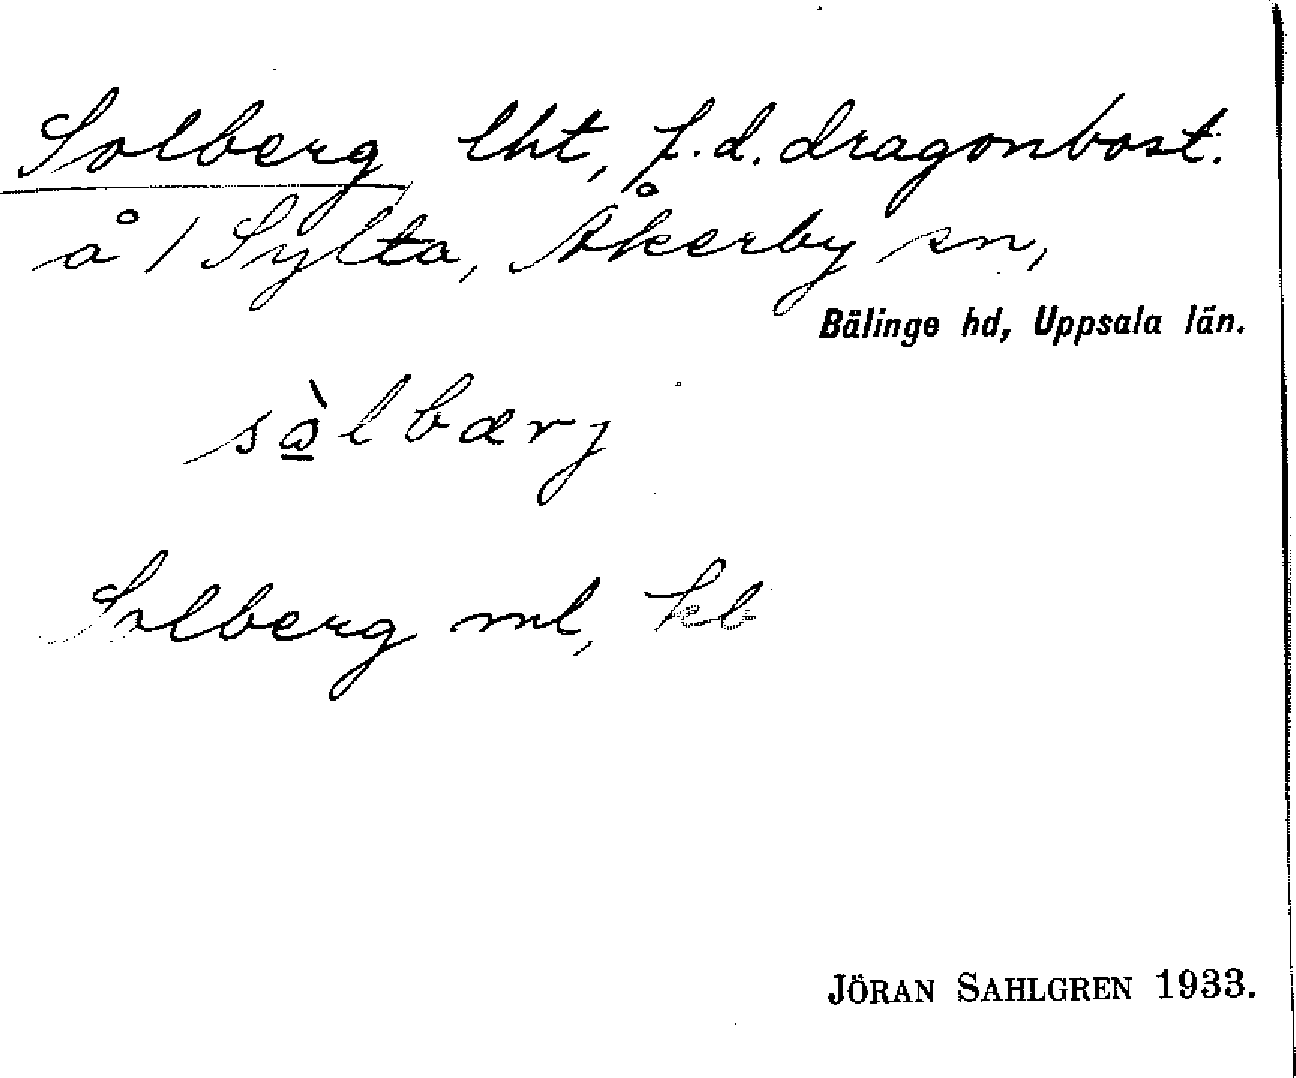 Solberg lht, f.d. dragonbost.
å / Sylta, Åkerby sn,
Bälinge hd, Uppsala län.
sὼlbærj
Solberg ml, kb
JÖRAN SAHLGREN 1933.